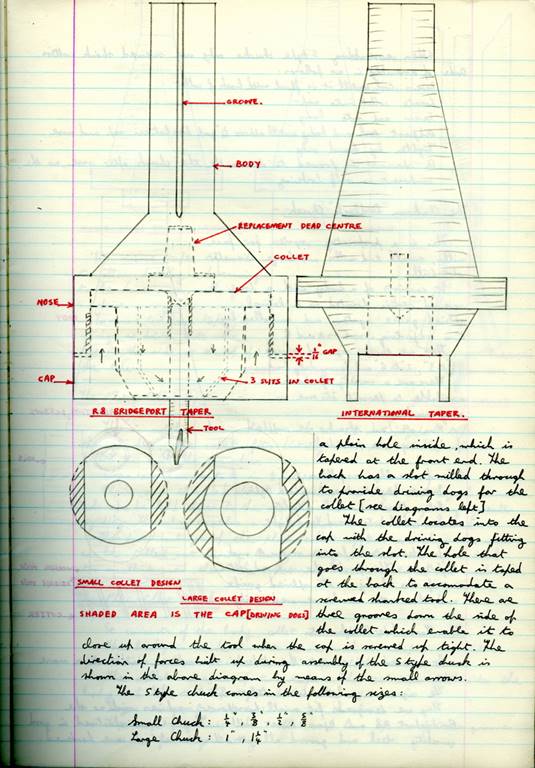 GROOVE.
BODY
REPLACEMENT DEAD CENTRE
COLLET
NOSE
1/16" GAP
CAP
3 SLITS IN COLLET
R8 BRIDGEPORT TAPER
INTERNATIONAL TAPER.
TOOL
SMALL COLLET DESIGN
LARGE COLLET DESIGN
SHADED AREA IS THE CAP [DRIVING DOGS]
a plain hole inside, which is
tapered at the front end. The
back has a slot milled through
to provide driving dogs for the
collet [see diagrams left]
The collet locates into the
cap with the driving dogs fitting
into the slot. The hole that
goes through the collet is taped
at the back to accomodate a
screwed shanked tool. There are
three grooves down the side of
the collet which enable it to
close up around the tool when the cap is screwed up tight. The
direction of forces built up during assembly of the S type chuck is
shown in the above diagram by means of the small arrows.
The S type chuck comes in the following sizes:
Small Chuck: 1/4", 3/8", 1/2", 5/8"
Large Chuck: 1", 1 1/4"